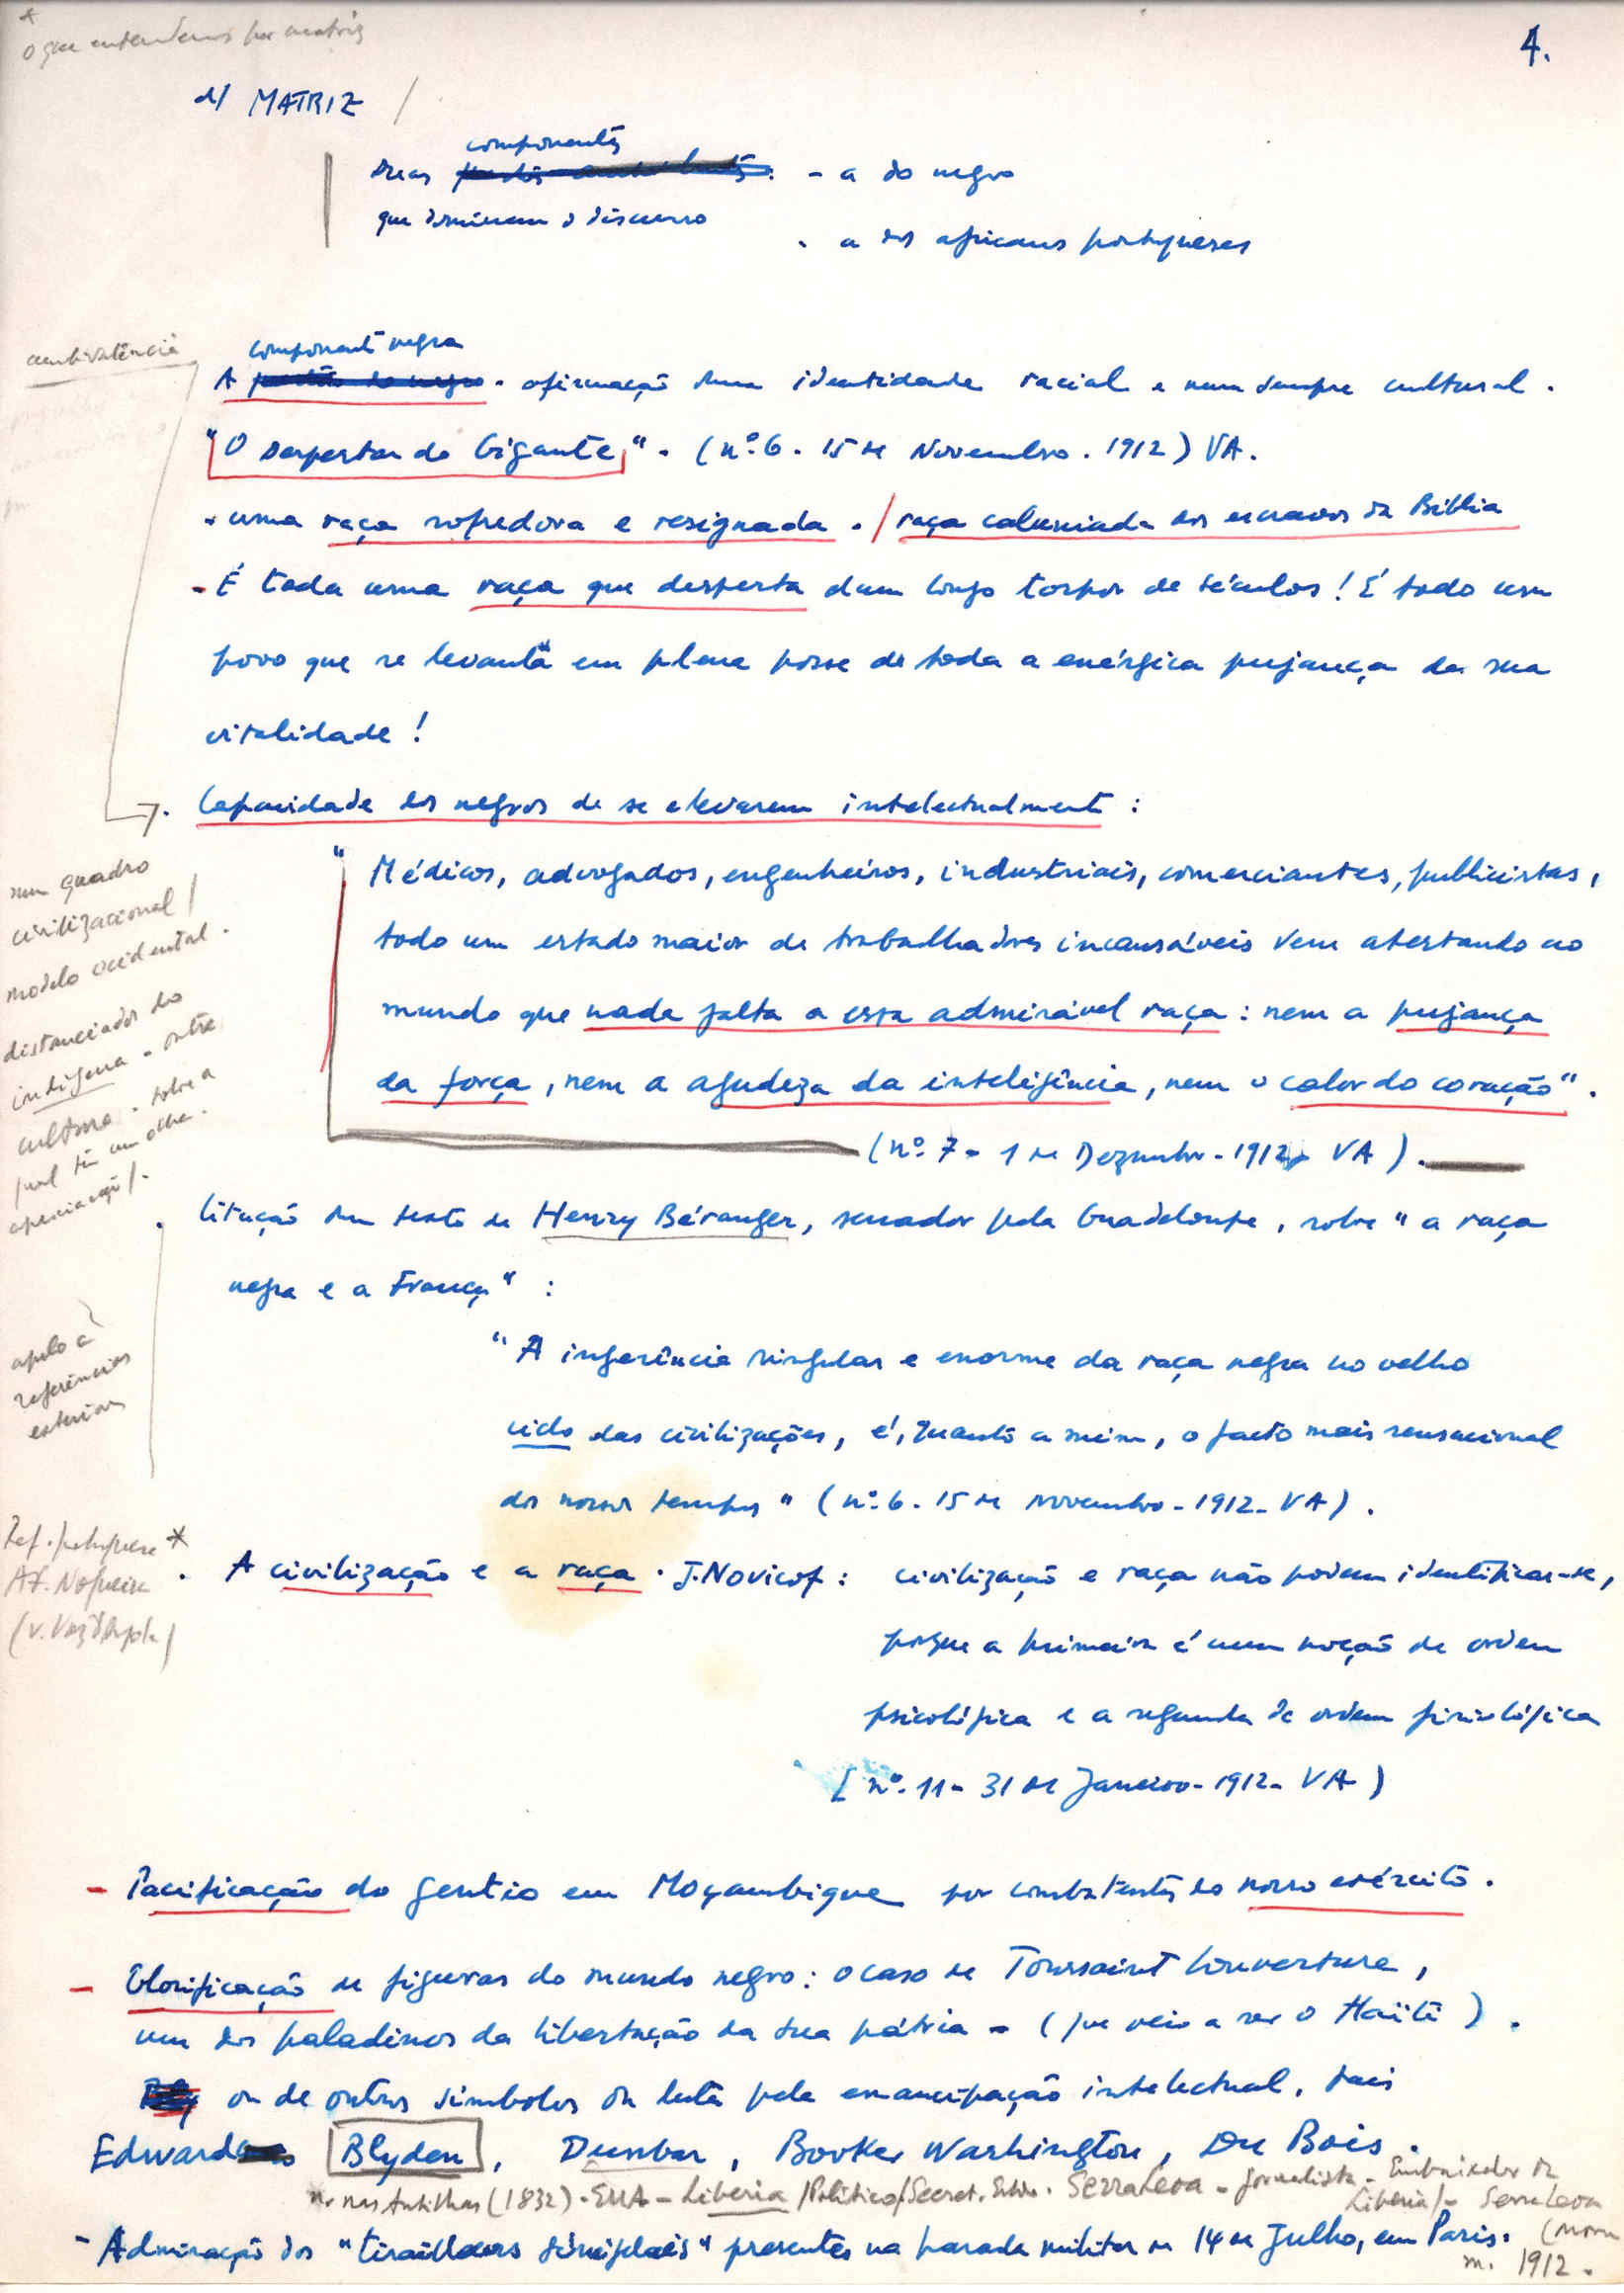 *
o que entendemos por matriz
4.
d/ MATRIZ /
componentes
Duas - a do negro
que dominam o discurso
. a dos africanos portugueses
ambivalência
componente negra
A . afirmação duma identidade racial e nem sempre cultural .
"O Despertar do Gigante" . (nº 6 . 15 de Novembro . 1912) VA.
. uma raça sofredora e resignada . / raça caluniada dos escravos da Bíblia
- É toda uma raça que desperta dum longo torpor de séculos ! É todo um
povo que se levanta em plena posse de toda a enérgica pujança da sua
vitalidade !
. Capacidade dos negros de se elevarem intelectualmente :
num quadro
civilizacional /
modelo ocidental .
distanciador do
indígena - outra
cultura . sobre a
qual têm um olhar .
apreciação / .
" Médicos, advogados, engenheiros, industriais, comerciantes, publicistas,
todo um estado maior de trabalhadores incansáveis vem atestando ao
mundo que nada falta a essa admirável raça : nem a pujança
da força , nem a agudeza da inteligência, nem o calor do coração" .
(nº 7 - 1 de Dezembro - 1912 - VA ) .
. Citação dum texto de Henry Béranger, senador pela Guadeloupe , sobre " a raça
negra e a França" :
apelo a
referências
exteriores
" A ingerência singular e enorme da raça negra no velho
ciclo das civilizações, é, quanto a mim, o facto mais sensacional
dos nossos tempos " (nº 6 . 15 de novembro - 1912 - VA) .
Ref. portuguesa *
Af. Nogueira
(v. Voz d'Angola /
. A civilização e a raça . J. Novicof : civilização e raça não podem identificar-se,
porque a primeira é uma noção de ordem
psicológica e a segunda de ordem fisiológica
( nº 11 - 31 de Janeiro - 1912 - VA )
- Pacificação do gentio em Moçambique por combatentes do nosso exército .
- Glorificação de figuras do mundo negro : o caso de Toussaint Louverture ,
um dos paladinos da libertação da sua pátria - ( que veio a ser o Haïti ) .
ou de outros símbolos da luta pela emancipação intelectual, tais
Edward Blyden , Dunbar , Booker Washington, Du Bois .
n. nas Antilhas (1832) - EUA - Libéria / Político / Secret. Estado . Serra Leoa - jornalista - Embaixador da
Libéria / - Serra Leoa
- Admiração dos "tirailleurs sénégalais" presentes na parada militar de 14 de Julho, em Paris .
m. 1912 .